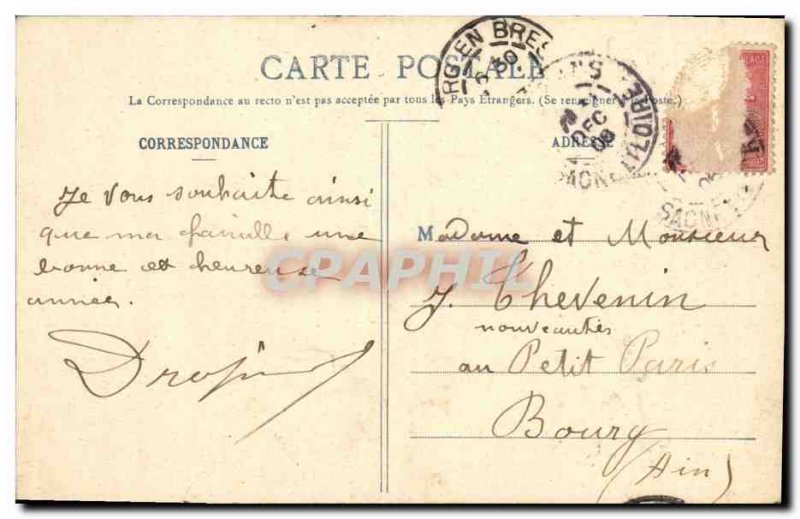 CARTE POSTALE
La Correspondance au recto n'est pas acceptée par tous les Pays Etrangers. (Se renseigner à la Poste.)
CORRESPONDANCE
ADRESSE
Je vous souhaite ainsi
que ma famille une
bonne et heureuse
année.
Madame et Monsieur
J. Thevenin
nouveautés
au Petit Paris
Bourg
(Ain)
CPAPHIL
EN BRES
DEC